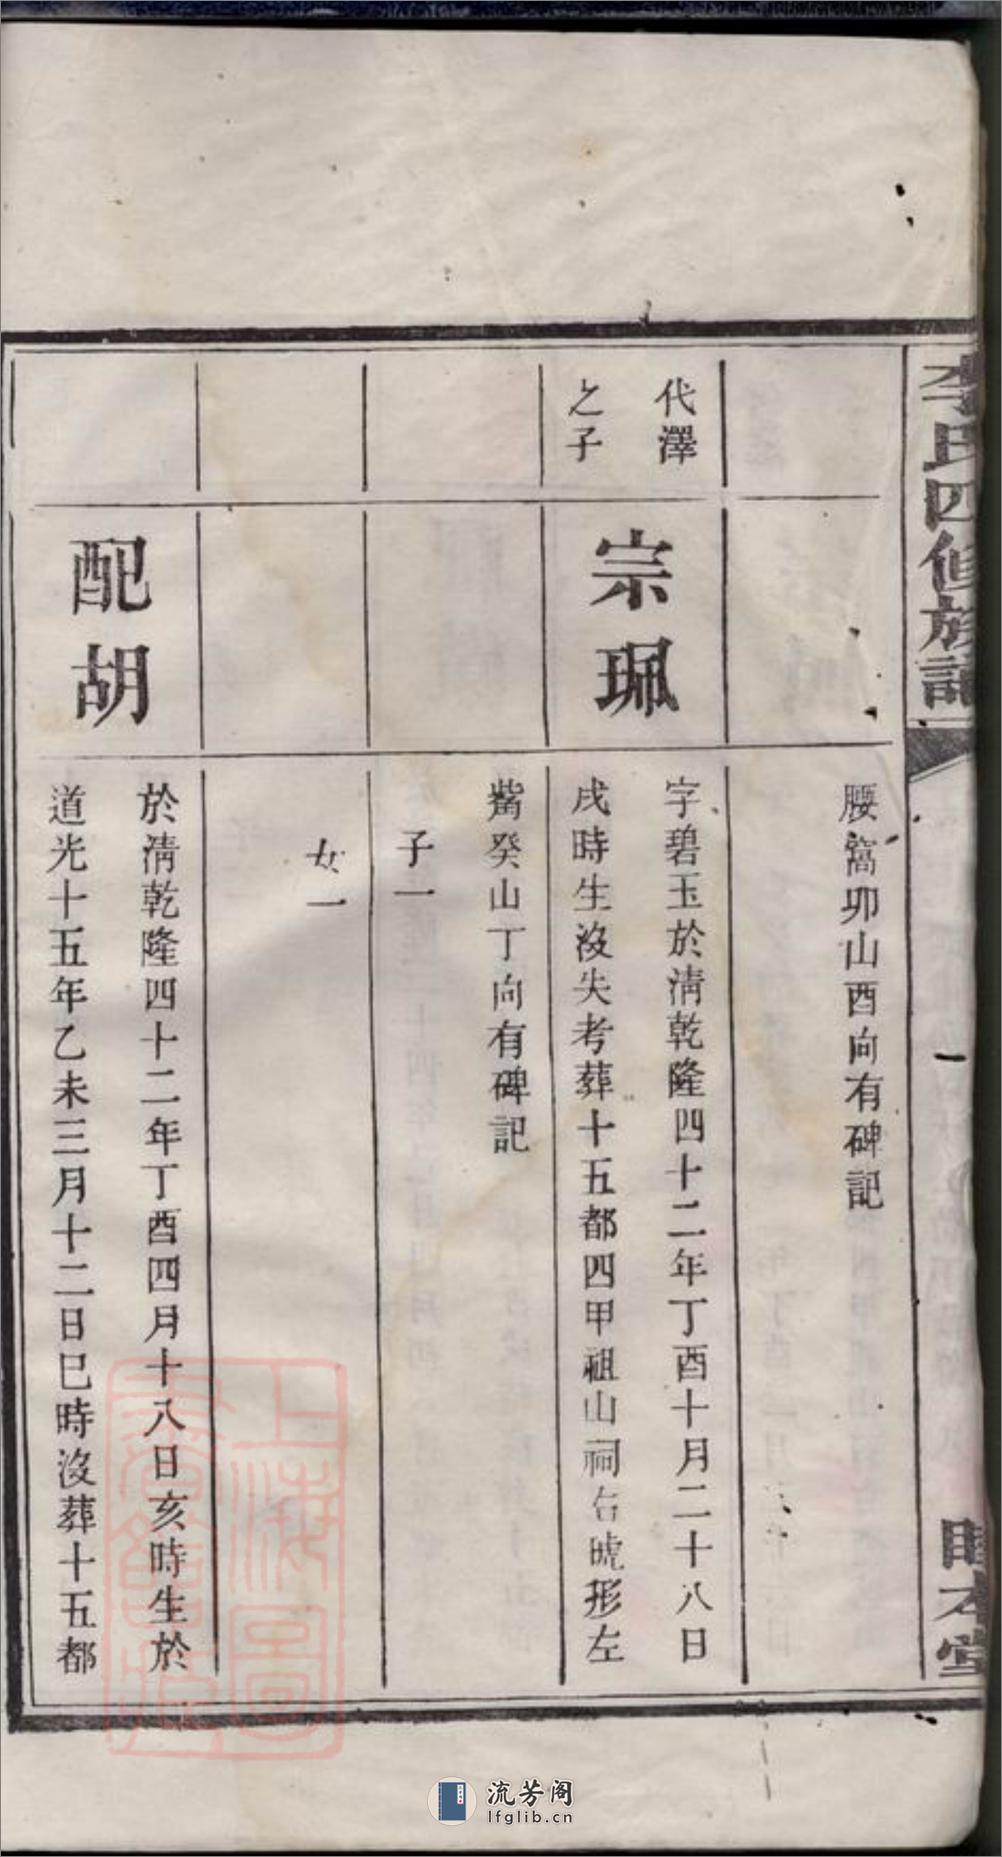 李氏四修族譜
睦本堂
腰窩卯山酉向有碑記
代澤
之子
宗珮
字碧玉於清乾隆四十二年丁酉十月二十八日
戌時生沒失考葬十五都四甲祖山祠右虎形左
觜癸山丁向有碑記
子一
女一
配胡
於清乾隆四十二年丁酉四月十八日亥時生於
道光十五年乙未三月十二日巳時沒葬十五都
上海圖
書館藏
流芳阁
lfglib.cn